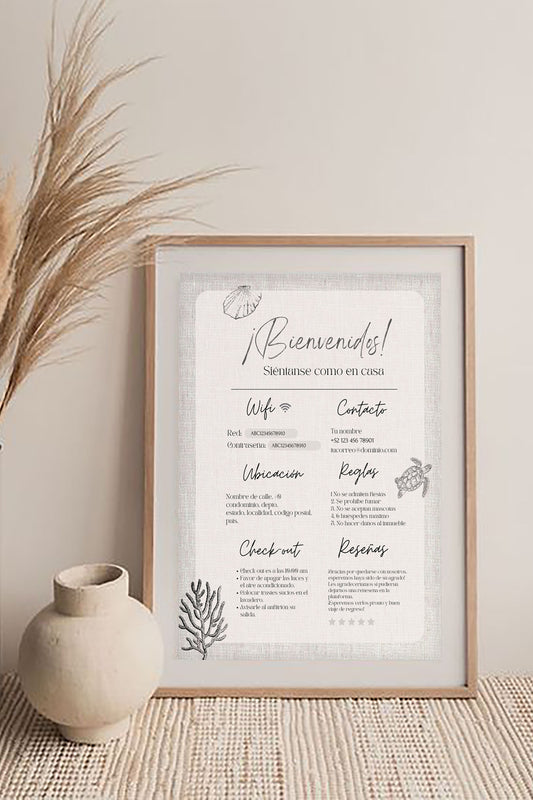 ¡Bienvenidos!
Siéntanse como en casa
Wifi
Red: ABC12345678910
Contraseña: ABC12345678910
Contacto
Tu nombre
+52 123 456 78901
tucorreo@dominio.com
Ubicación
Nombre de calle, #9
condominio, depto.
estado, localidad, código postal,
país.
Reglas
1. No se admiten fiestas
2. Se prohibe fumar
3. No se aceptan mascotas
4. 6 huéspedes máximo
5. No hacer daños al inmueble
Check-out
• Check out es a las 10:00 am
• Favor de apagar las luces y
el aire acondicionado.
• trastes sucios en el
lavadero.
• Avisarle al anfitrión su
salida.
Reseñas
¡Gracias por quedarse con nosotros,
esperemos haya sido de su agrado!
Les agradeceríamos si pudieran
dejarnos una en la
plataforma.
¡Esperemos verlos pronto y buen
viaje de regreso!